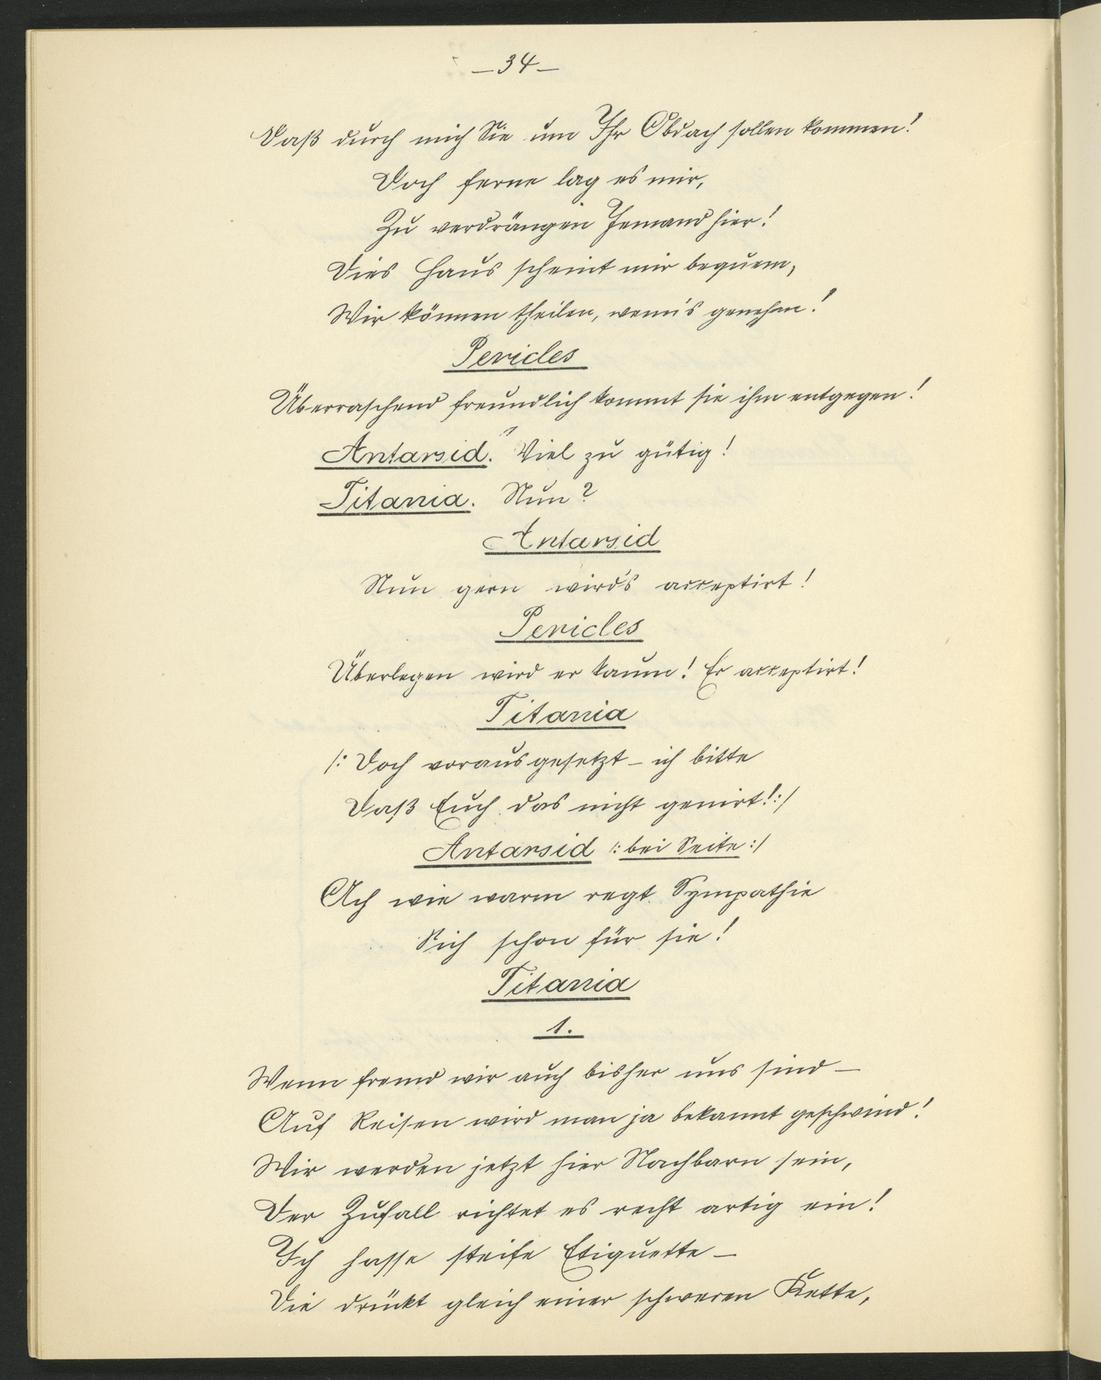 —34—
Daß durch mich Sie um Ihr Obdach sollen kommen!
Doch ferne lag es mir,
Zu verdrängen Jemand hier!
Dies Haus scheint mir bequem,
Wir können theilen, wenn's genehm!
Pericles
Überraschend freundlich kommt sie ihm entgegen!
Antarsid. Viel zu gütig!
Titania. Nun?
Antarsid
Nun gern wird's acceptirt!
Pericles
Überlegen wird er kaum! Er acceptirt!
Titania
/: Doch vorausgesetzt — ich bitte
Daß Euch das nicht genirt! :/
Antarsid /: bei Seite :/
Ach wie warm regt Sympathie
Sich schon für sie!
Titania
1.
Wenn fremd wir auch bisher uns sind —
Auf Reisen wird man ja bekannt geschwind!
Wir werden jetzt hier Nachbarn sein,
Der Zufall richtet es recht artig ein!
Ich hasse steife Etiquette —
Die drückt gleich einer schweren Kette,